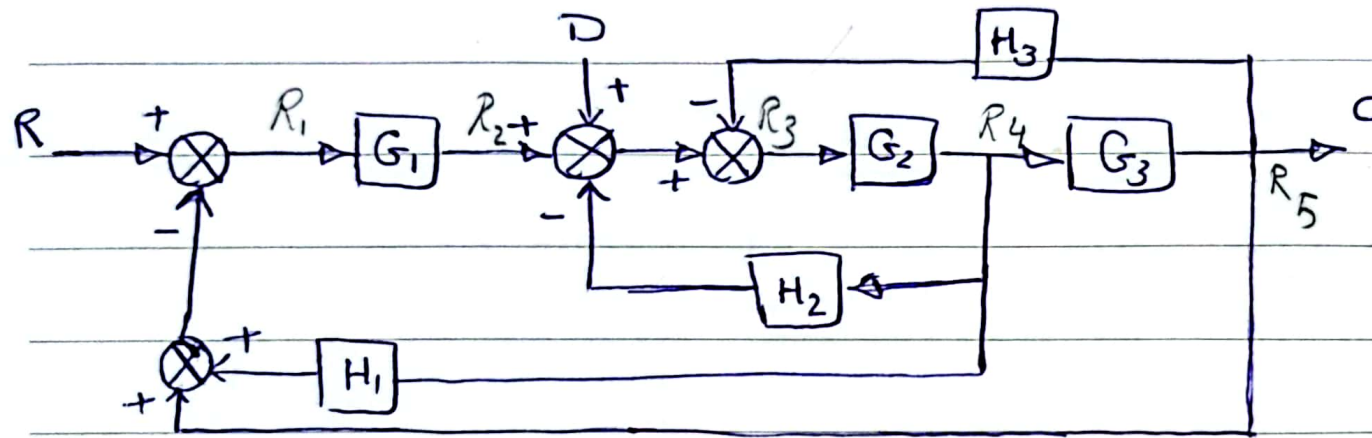 D
H₃
R + R₁ G₁ R₂ + + - R₃ G₂ R₄ G₃ C
+
- - R₅
H₂
+ H₁
+